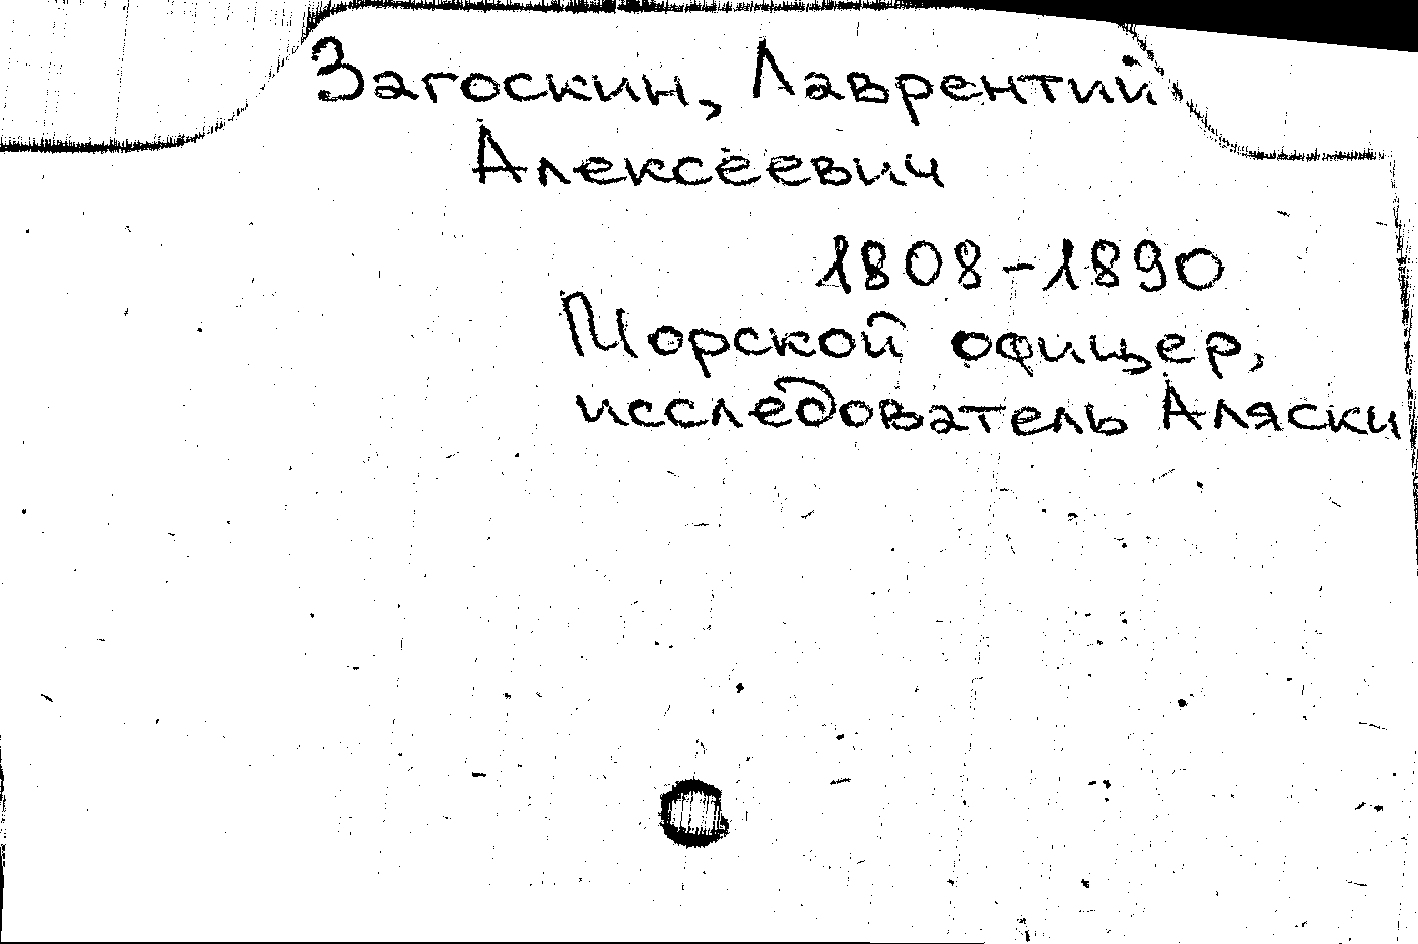 Загоскин, Лаврентий
Алексеевич
1808-1890
Морской офицер,
исследователь Аляски